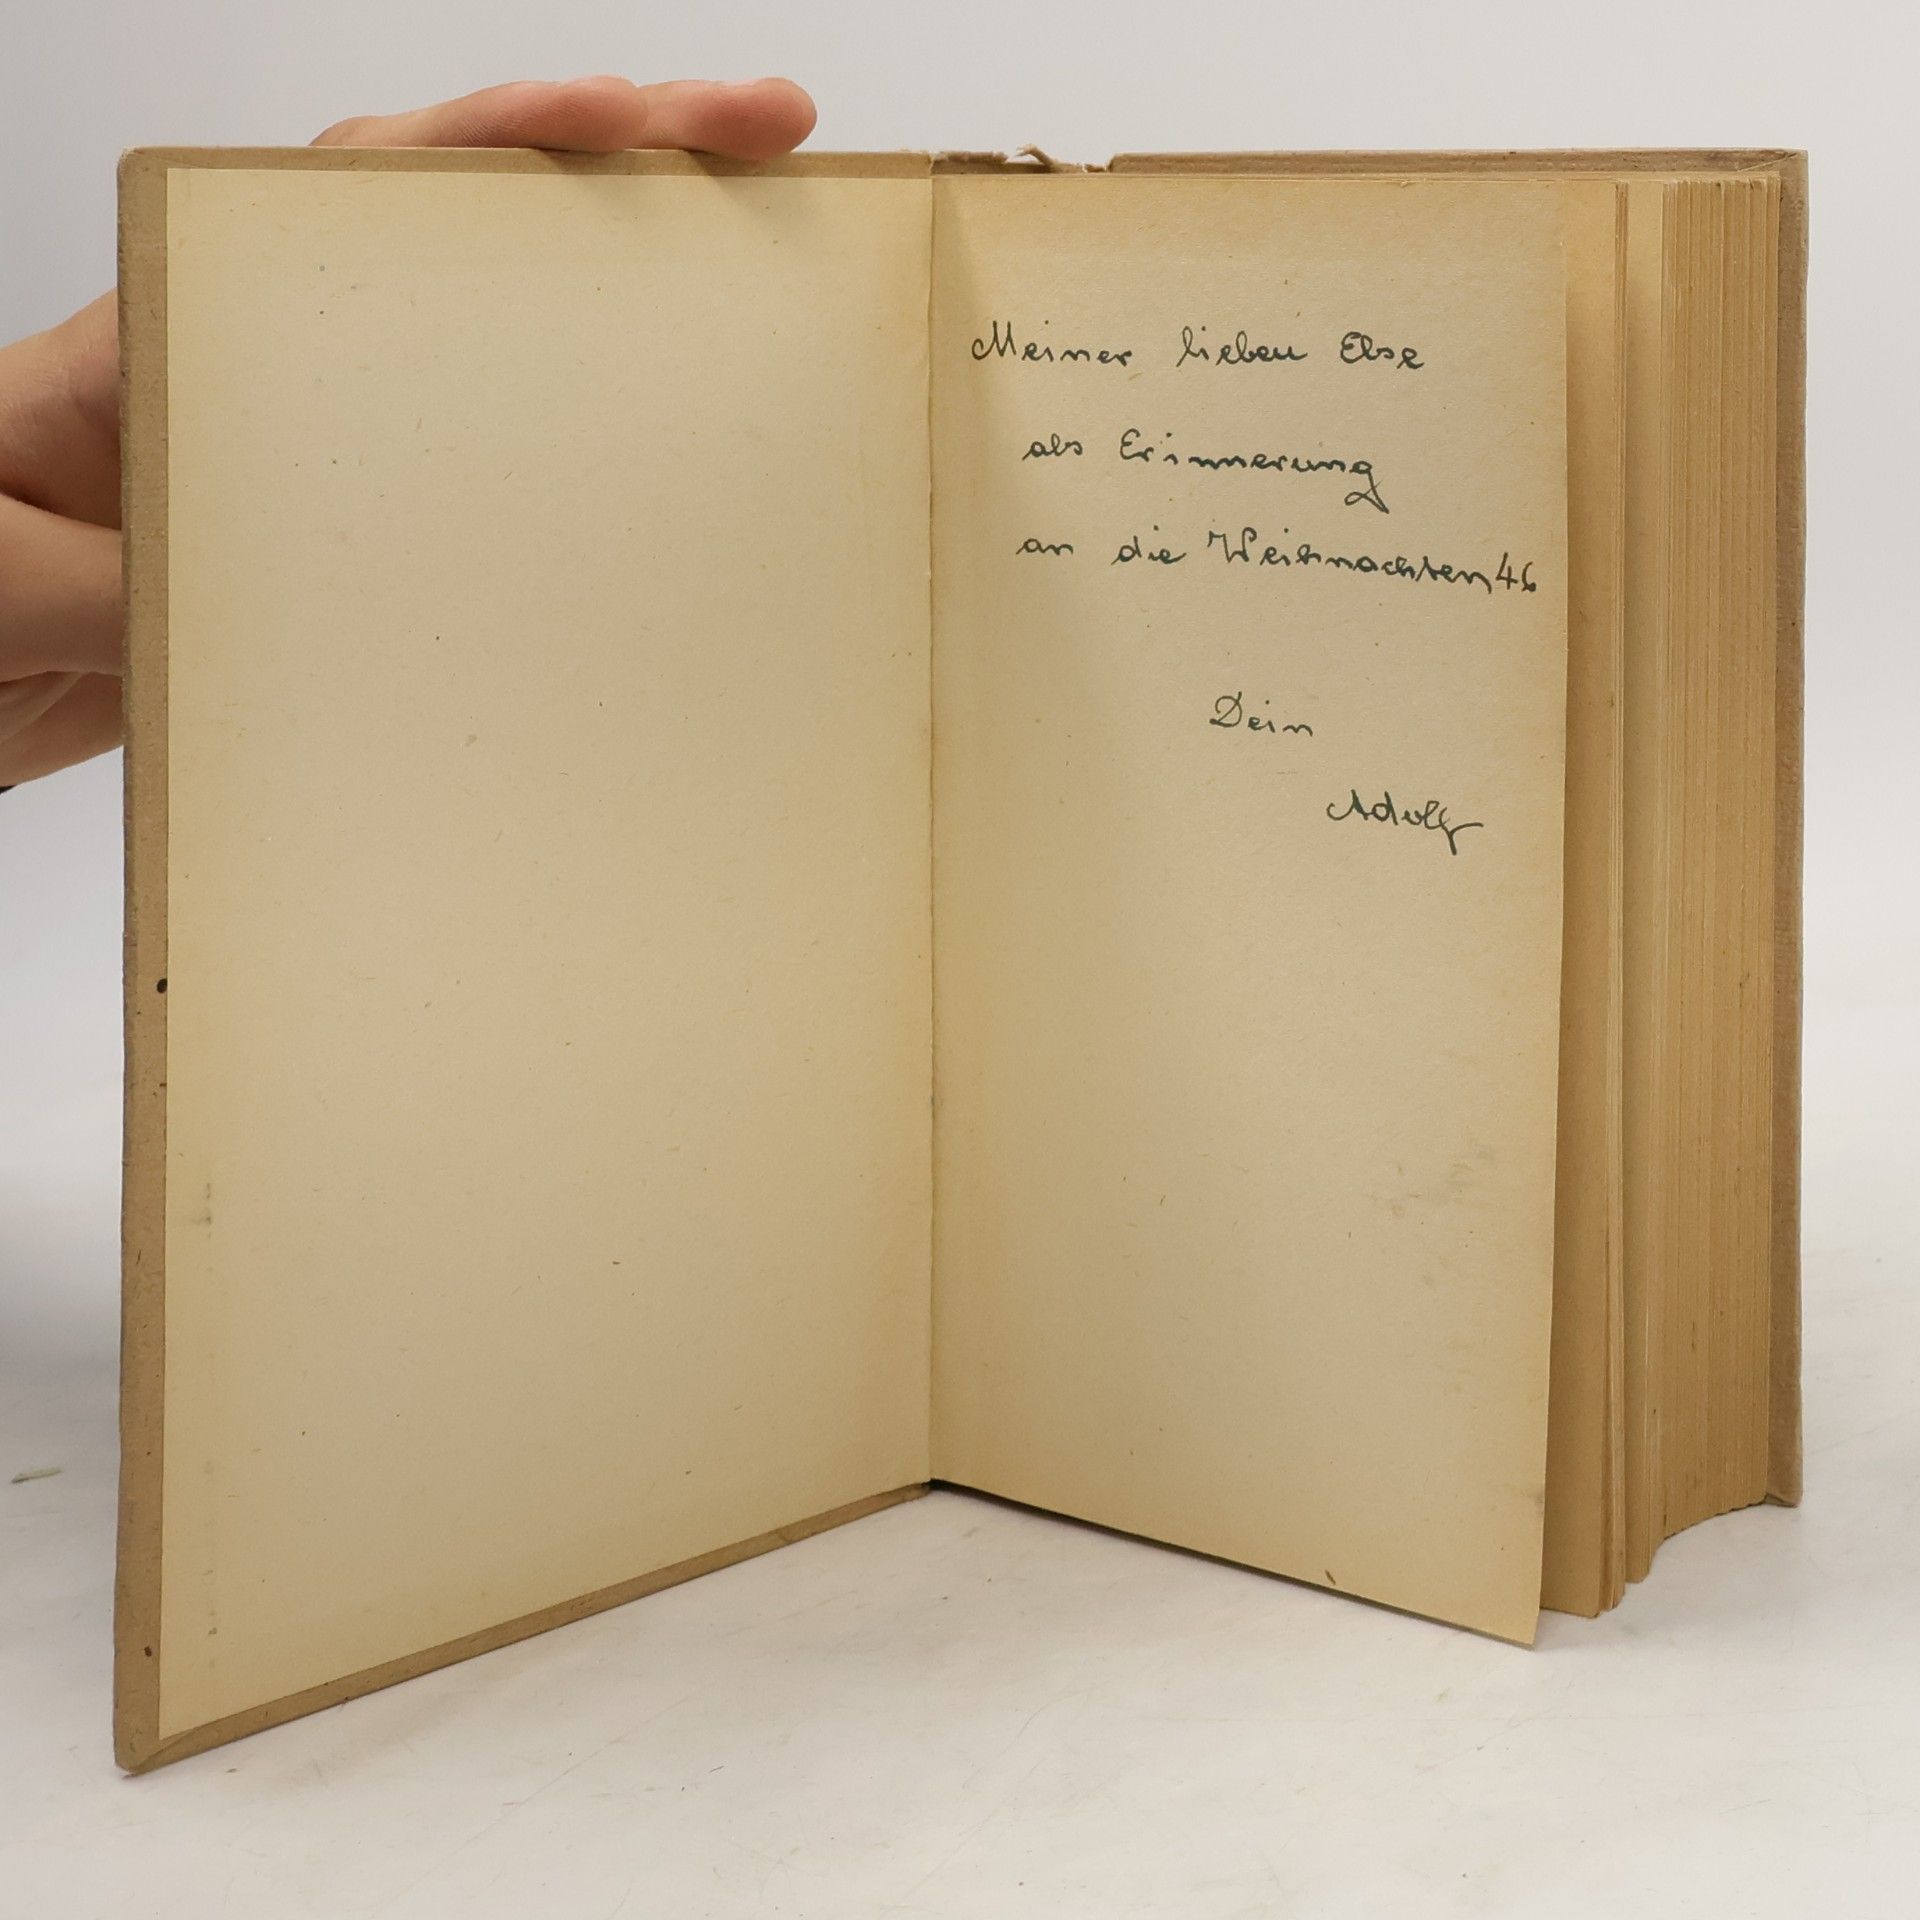 Meiner lieben Else
als Erinnerung
an die Weihnachten 46
Dein
Adolf